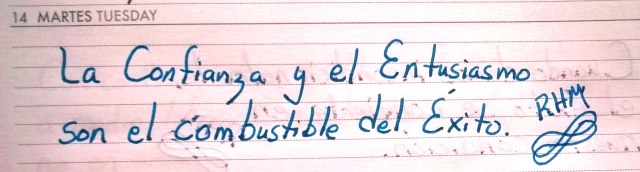 14 MARTES TUESDAY
La Confianza y el Entusiasmo
son el combustible del Éxito. RHM